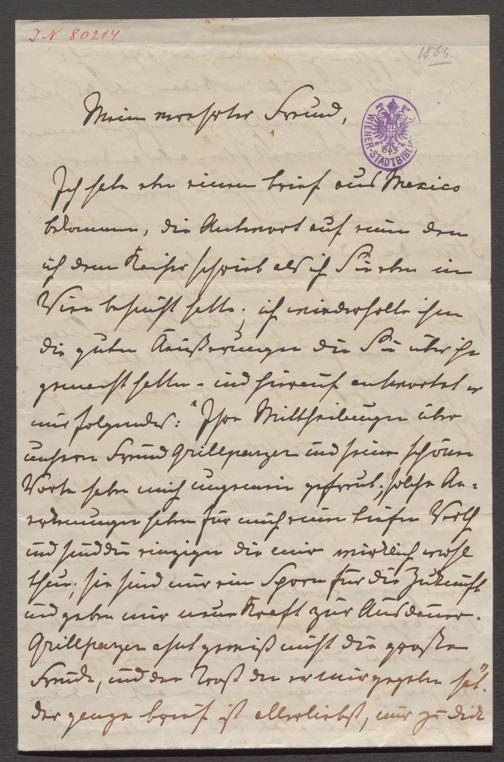 J.N 80214
1866.
WIENER-STADTBIBL
Mein verehrter Freund,
Ich habe eben einen Brief aus Mexico
bekommen, die Antwort auf einen den
ich dem Kaiser schrieb als ich Sie eben in
Wien besucht hatte; ich wiederholte ihm
die guten Äußerungen die Sie über ihn
gemacht hatten - und hierauf antwortet er
mir folgendes: "Ihre Mittheilungen über
unsern Freund Grillparzer und seine schönen
Worte haben mich ungemein gefreut, solche An-
erkennungen haben für mich einen tiefen Werth
und sind die einzigen die mir wirklich wohl
thun; sie sind mir ein Sporn für die Zukunft
und geben mir neue Kraft zur Ausdauer.
Grillparzer ahnt gewiß nicht die große
Freude, und den Trost den er mir gegeben hat".
Der ganze Brief ist allerliebst, nur zu dick